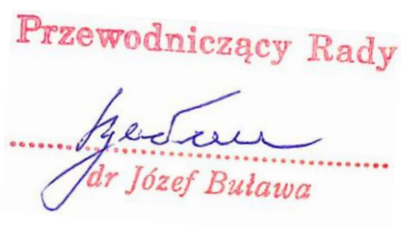 Przewodniczący Rady
dr Józef Buława